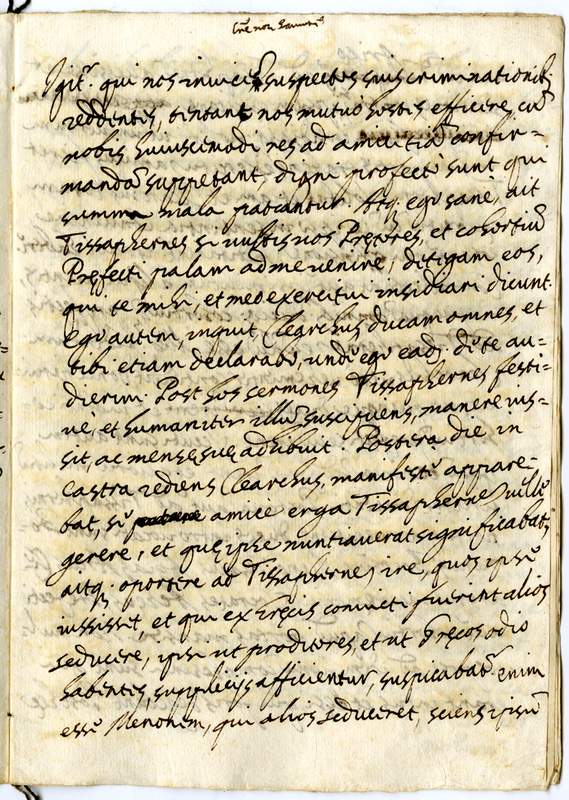 Igit.^r qui nos invicē suspectos suis criminationib;
reddentes, tentant nos mutuo hostes efficere, cū
nobis huiuscemodi res ad amicitiā confir-
mandā suppetant, digni profectò sunt qui
summa mala patiantur. Atq; ego sanè, ait
Tissaphernes si vultis vos Pręteres, et cohortiū
Pręfecti palam ad me venire, dicam eos,
qui te mihi, et meo exercitui insidiari dicunt.
ego autem, inquit, Clearchus ducam omnes, et
tibi etiam declarabo, unde ego eadē de te au-
dierim. Post hos sermones Tissaphernes festi-
vè, et humaniter illū suscipiens, manere ius-
sit, ac mensęq; adhibuit. Postera die in
castra rediens Clearchus, manifestè appare-
bat, se amicè erga Tissapherne velle
gerere, et quę ipse nuntiaverat significabat,
aitq; oportere ad Tissapherne ire, quos ipse
iussisset, et qui ex Gręcis convicti fuerint alios
seducere, ipse ut proditores, et ut Gręcos odio
habentes, supplicijs afficientur, suspicabat.^r enim
esse Menonem, qui alios seduceret, sciens ipsū